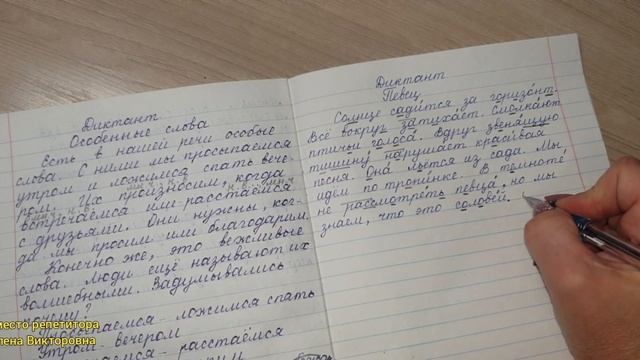 Диктант.
Особенные слова
Есть в нашей речи особые
слова. С ними мы просыпаемся
утром и ложимся спать вече
ром. Их произносим, когда
встречаемся или расстаёмся
с друзьями. Они нужны, ког-
да мы просим или благодарим.
Конечно же, это вежливые
слова. Люди ещё называют их
волшебными. Задумывались
почему?
Просыпаемся - ложимся спать
Утром - вечером
расстаёмся
Диктант
Певец
Солнце садится за горизонт.
Всё вокруг затихает. Смолкают
птичьи голоса. Вдруг звенящую
тишину нарушает красивая
песня. Она льётся из сада. Мы
идём по тропинке. В темноте
не рассмотреть певца, но мы
знаем, что это соловей.
место репетитора
лена Викторовна